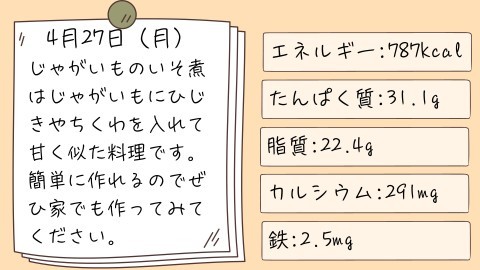 4月27日（月）
じゃがいものいそ煮
はじゃがいもにひじ
きやちくわを入れて
甘く似た料理です。
簡単に作れるのでぜ
ひ家でも作ってみて
ください。
エネルギー:787kcal
たんぱく質:31.1g
脂質:22.4g
カルシウム:291mg
鉄:2.5mg